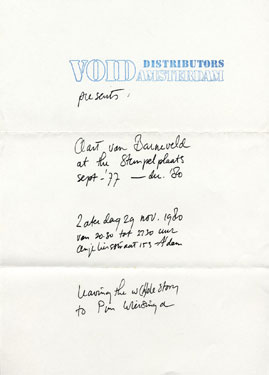 VOID DISTRIBUTORS
AMSTERDAM
presents:
Aart van Barneveld
at the Stempelplaats
sept-'77 — dec. 80
Zaterdag 29 nov. 1980
van 20.30 tot 22.30 uur
Anjeliersstraat 153 A'dam
leaving the w(h)ole story
to Pim Wiersinga